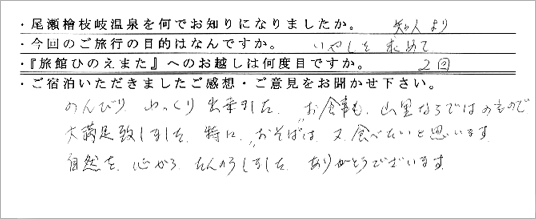 ・尾瀬檜枝岐温泉を何でお知りになりましたか。 知人より
・今回のご旅行の目的はなんですか。 いやしを求めて
・『旅館ひのえまた』へのお越しは何度目ですか。 2回
・ご宿泊いただきましたご感想・ご意見をお聞かせ下さい。
のんびり ゆっくり出来ました。お食事も、山里ならではのもので
大満足致しました。特に、"おそばは、又、食べたいと思います。
自然を、心から、たんのうしました。ありがとうございます。